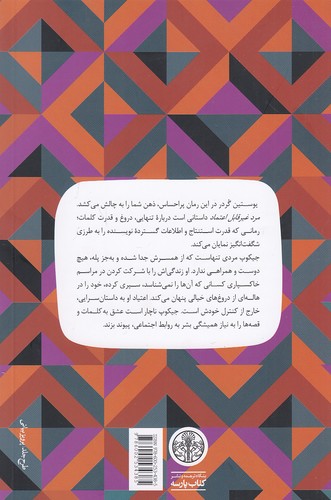 یوستین گُردر در این رمان پراحساس، ذهن شما را به چالش می‌کشد.
مرد غیرقابل اعتماد داستانی است دربارهٔ تنهایی، دروغ و قدرت کلمات؛
رمانی که قدرت استنتاج و اطلاعات گستردهٔ نویسنده را به طرزی
شگفت‌انگیز نمایان می‌کند.
جیکوپ مردی تنهاست که از همسرش جدا شده و به‌جز پله، هیچ
دوست و همراهی ندارد. او زندگی‌اش را با شرکت کردن در مراسم
خاکسپاری کسانی که آن‌ها را نمی‌شناسد، سپری کرده، خود را در
هاله‌ای از دروغ‌های خیالی پنهان می‌کند. اعتیاد او به داستان‌سرایی،
خارج از کنترل خودش است. جیکوپ ناچار است عشق به کلمات و
قصه‌ها را به نیاز همیشگی بشر به روابط اجتماعی، پیوند بزند.
طرح جلد: پرویز بیانی
بنگاه ترجمه و نشر
کتاب پارسه